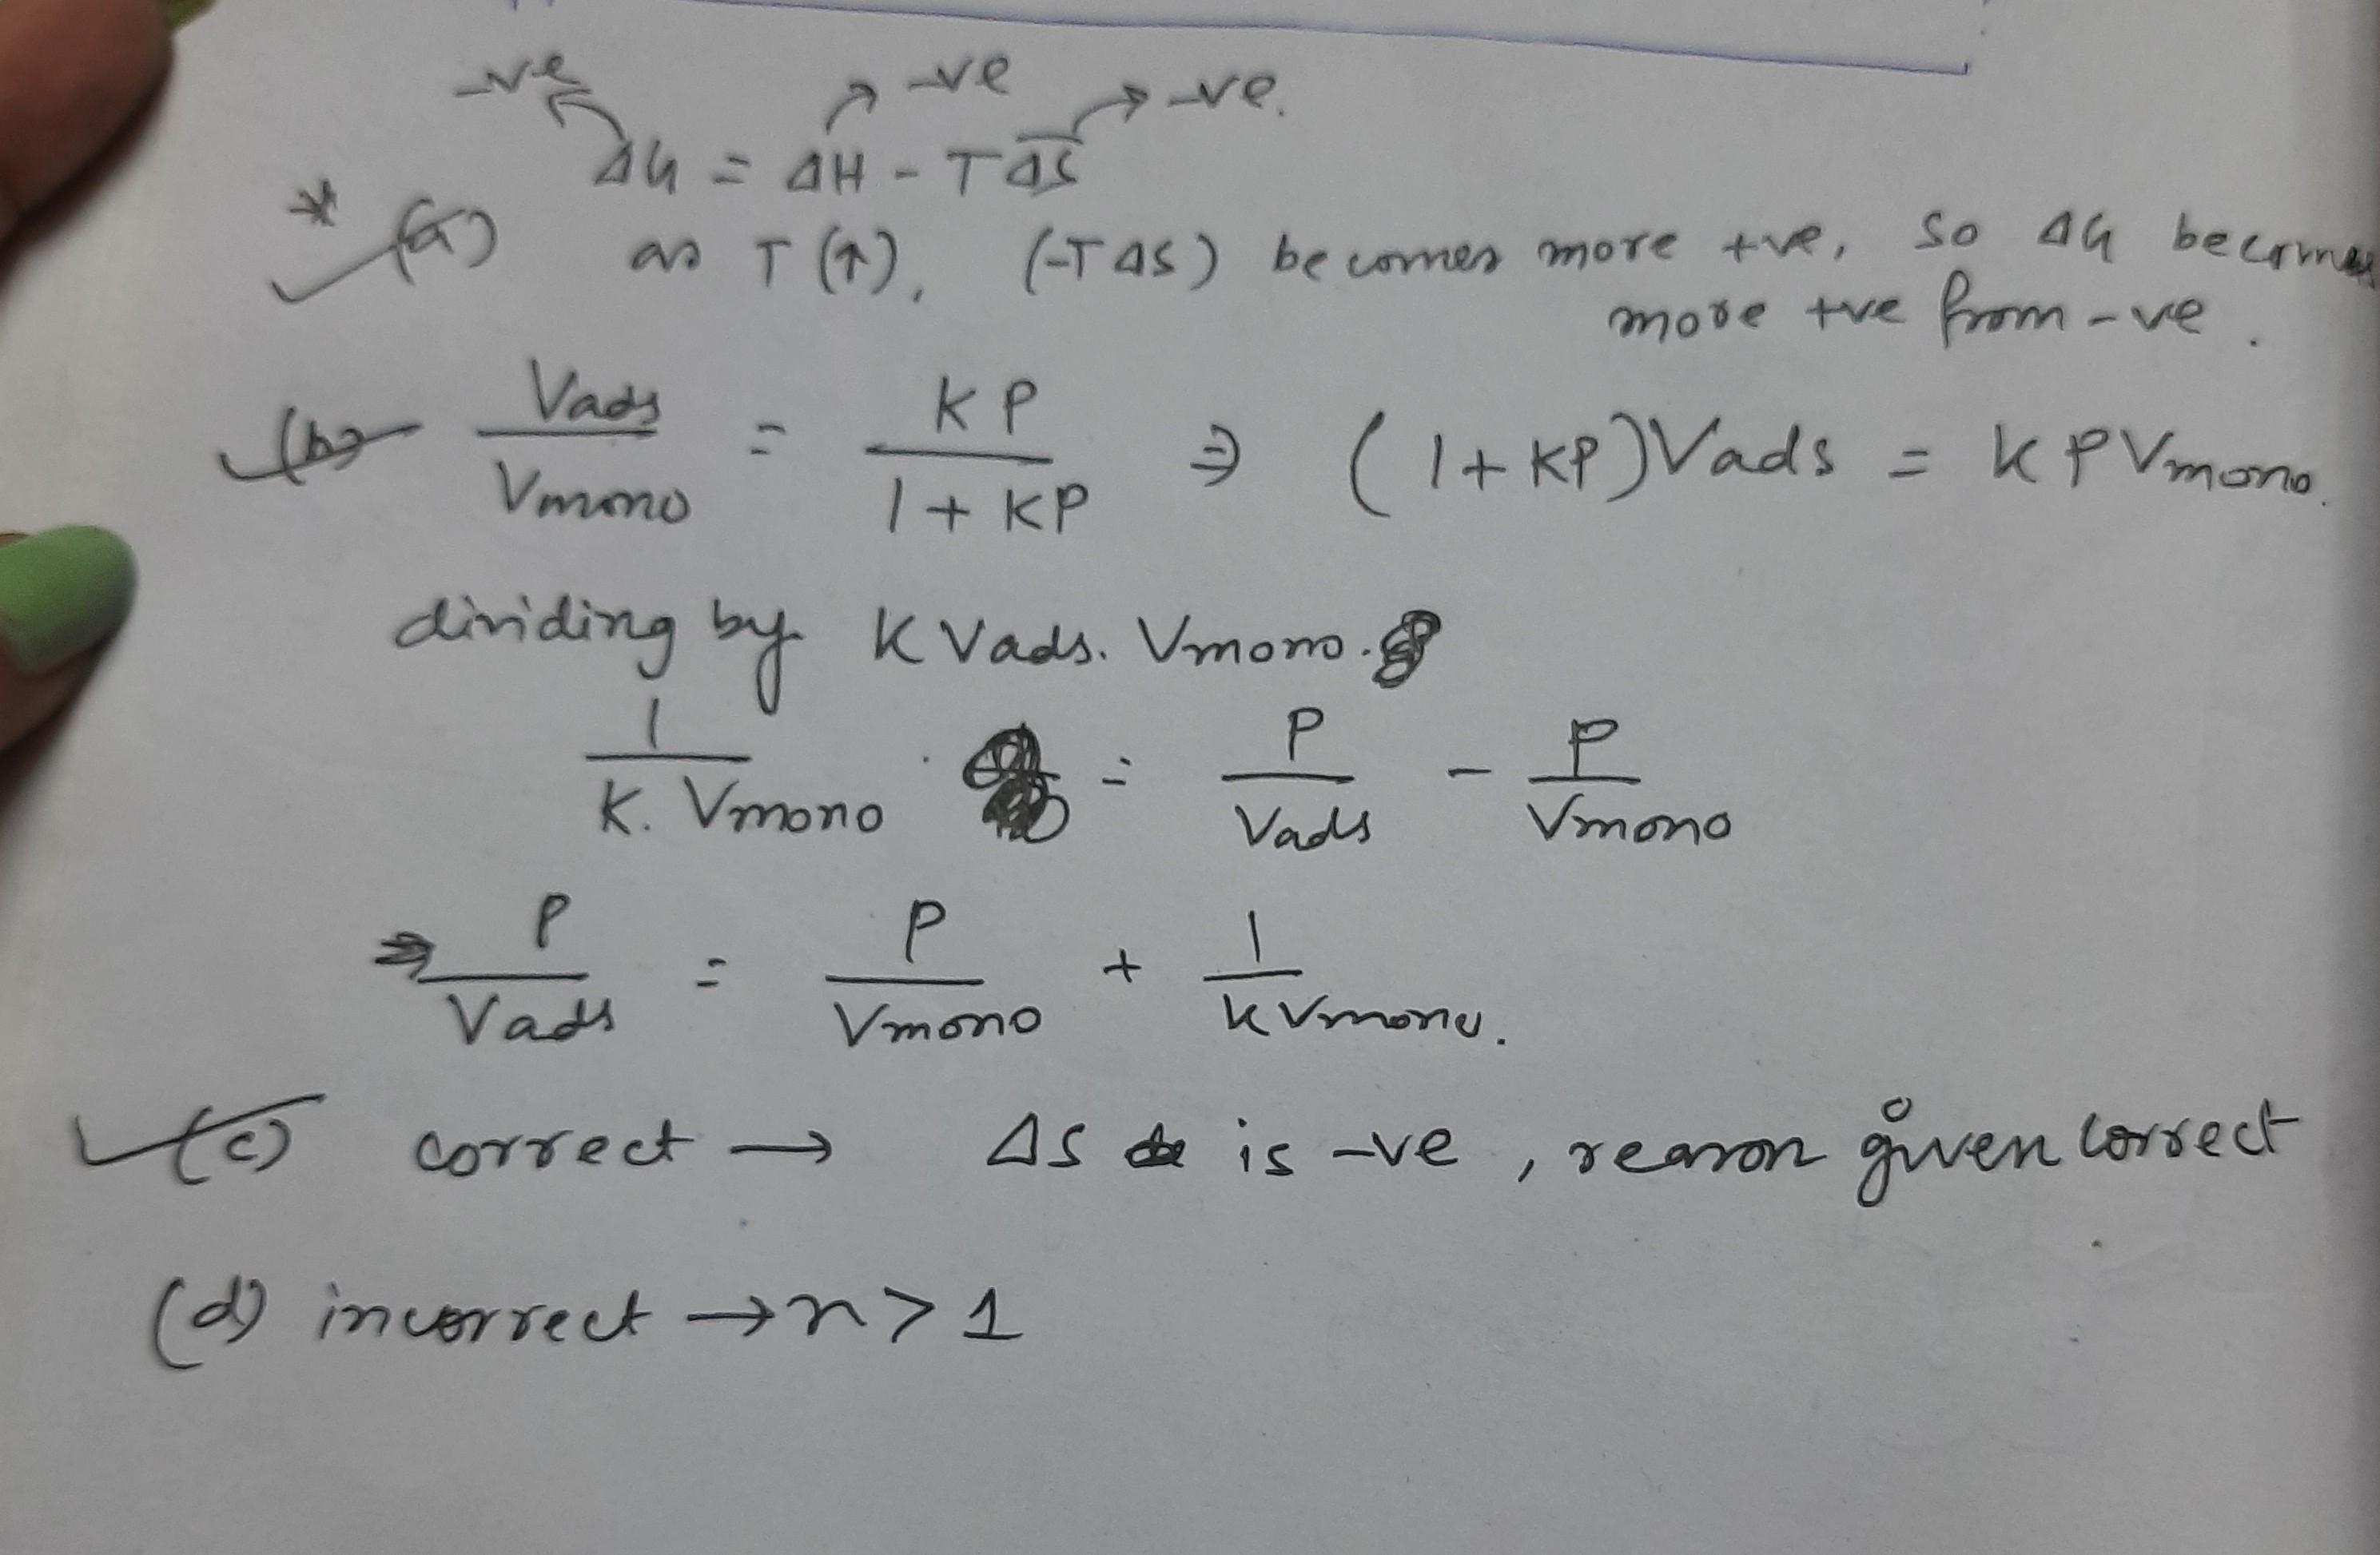 -ve -ve -ve.
ΔG = ΔH - TΔS
* (a) as T (↑), (-TΔS) becomes more +ve, so ΔG becomes
more +ve from -ve.
(b) Vads / Vmono = KP / 1 + KP ⇒ (1 + KP) Vads = KP Vmono.
dividing by K Vads. Vmono.
1 / K. Vmono = P / Vads - P / Vmono
⇒ P / Vads = P / Vmono + 1 / K Vmono.
(c) correct → ΔS is -ve, reason given correct
(d) incorrect → n > 1